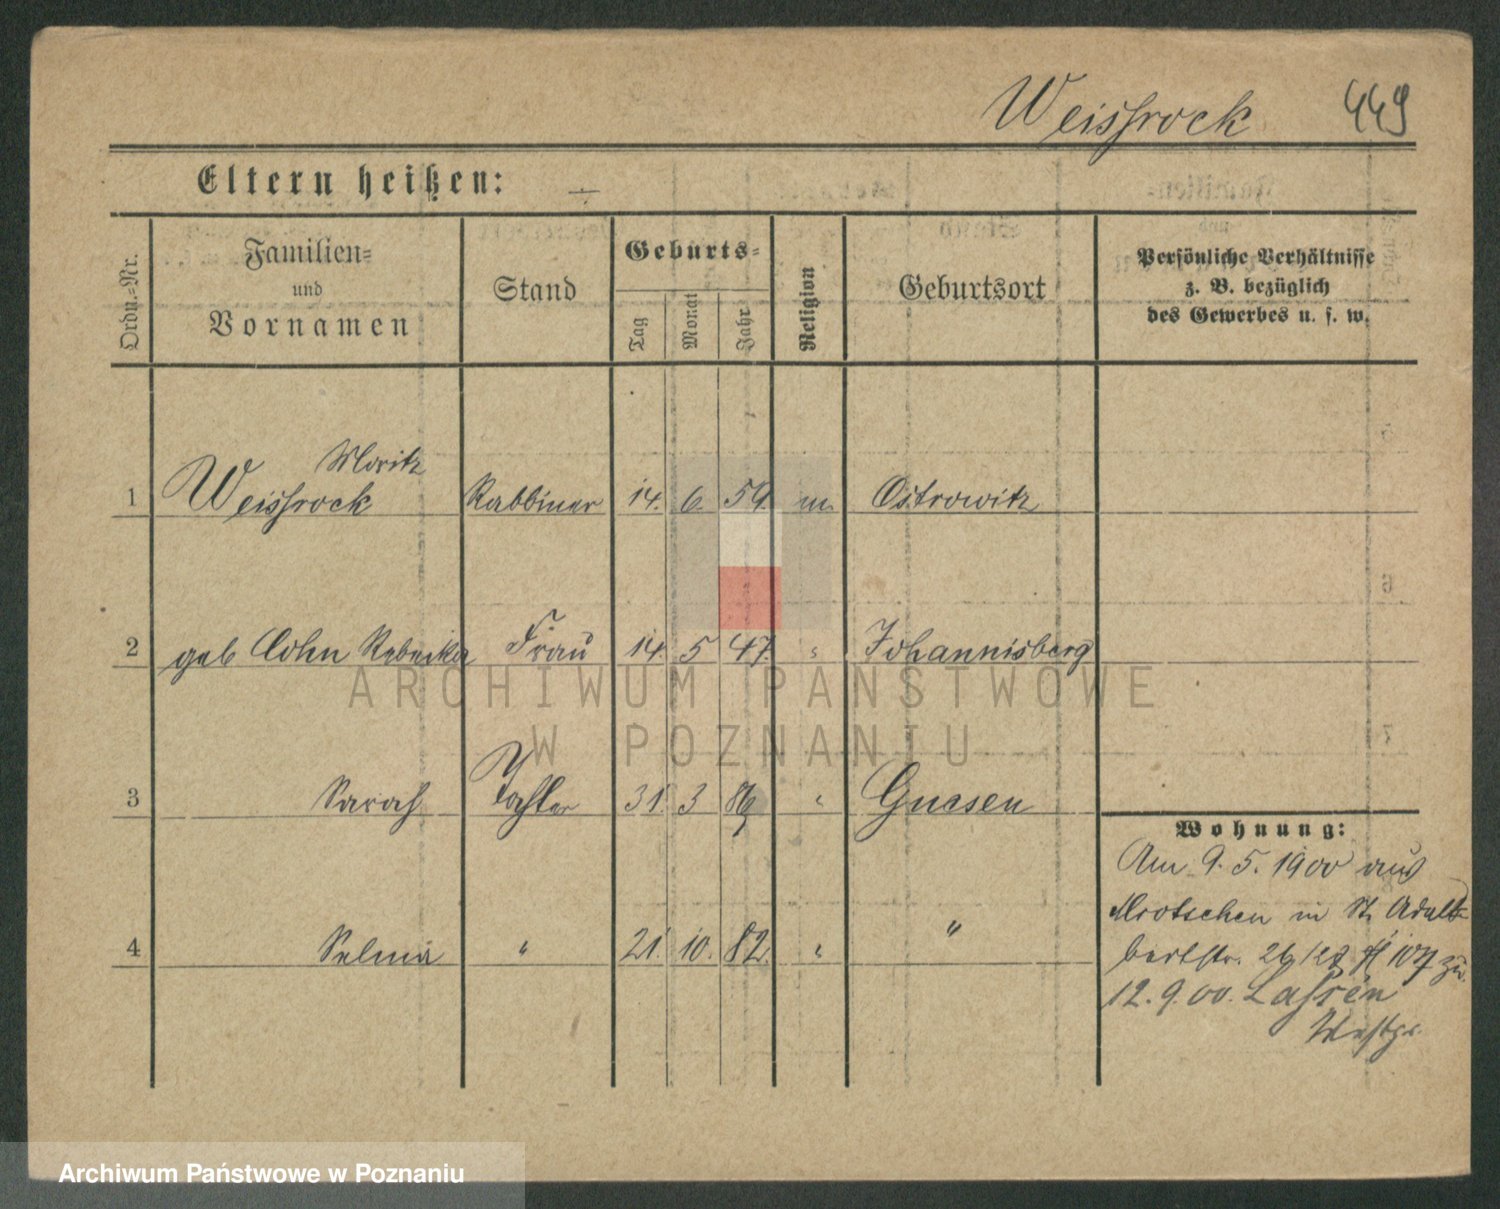 Weissrock 449
Eltern heißen: —
Ordn.-Nr.
Familien-
und
Vornamen
Stand
Geburts-
Tag
Monat
Jahr
Religion
Geburtsort
Persönliche Verhältnisse
z. B. bezüglich
des Gewerbes u. s. w.
Moritz
1 Weissrock Rabbiner 14. 6. 59. m. Ostrowitz
2 geb Cohn Rebecka Frau 14. 5 47. " Johannisberg
3 Sarah Tochter 31. 3 " Gnesen
4 Selma " 21. 10. 82. " "
Wohnung:
Am 9. 5. 1900 aus
Mrotschen in St. Adal-
bertstr. 26/27 zu.
12. 9. 00. Lassen
Westpr.
ARCHIWUM PAŃSTWOWE
W POZNANIU
Archiwum Państwowe w Poznaniu